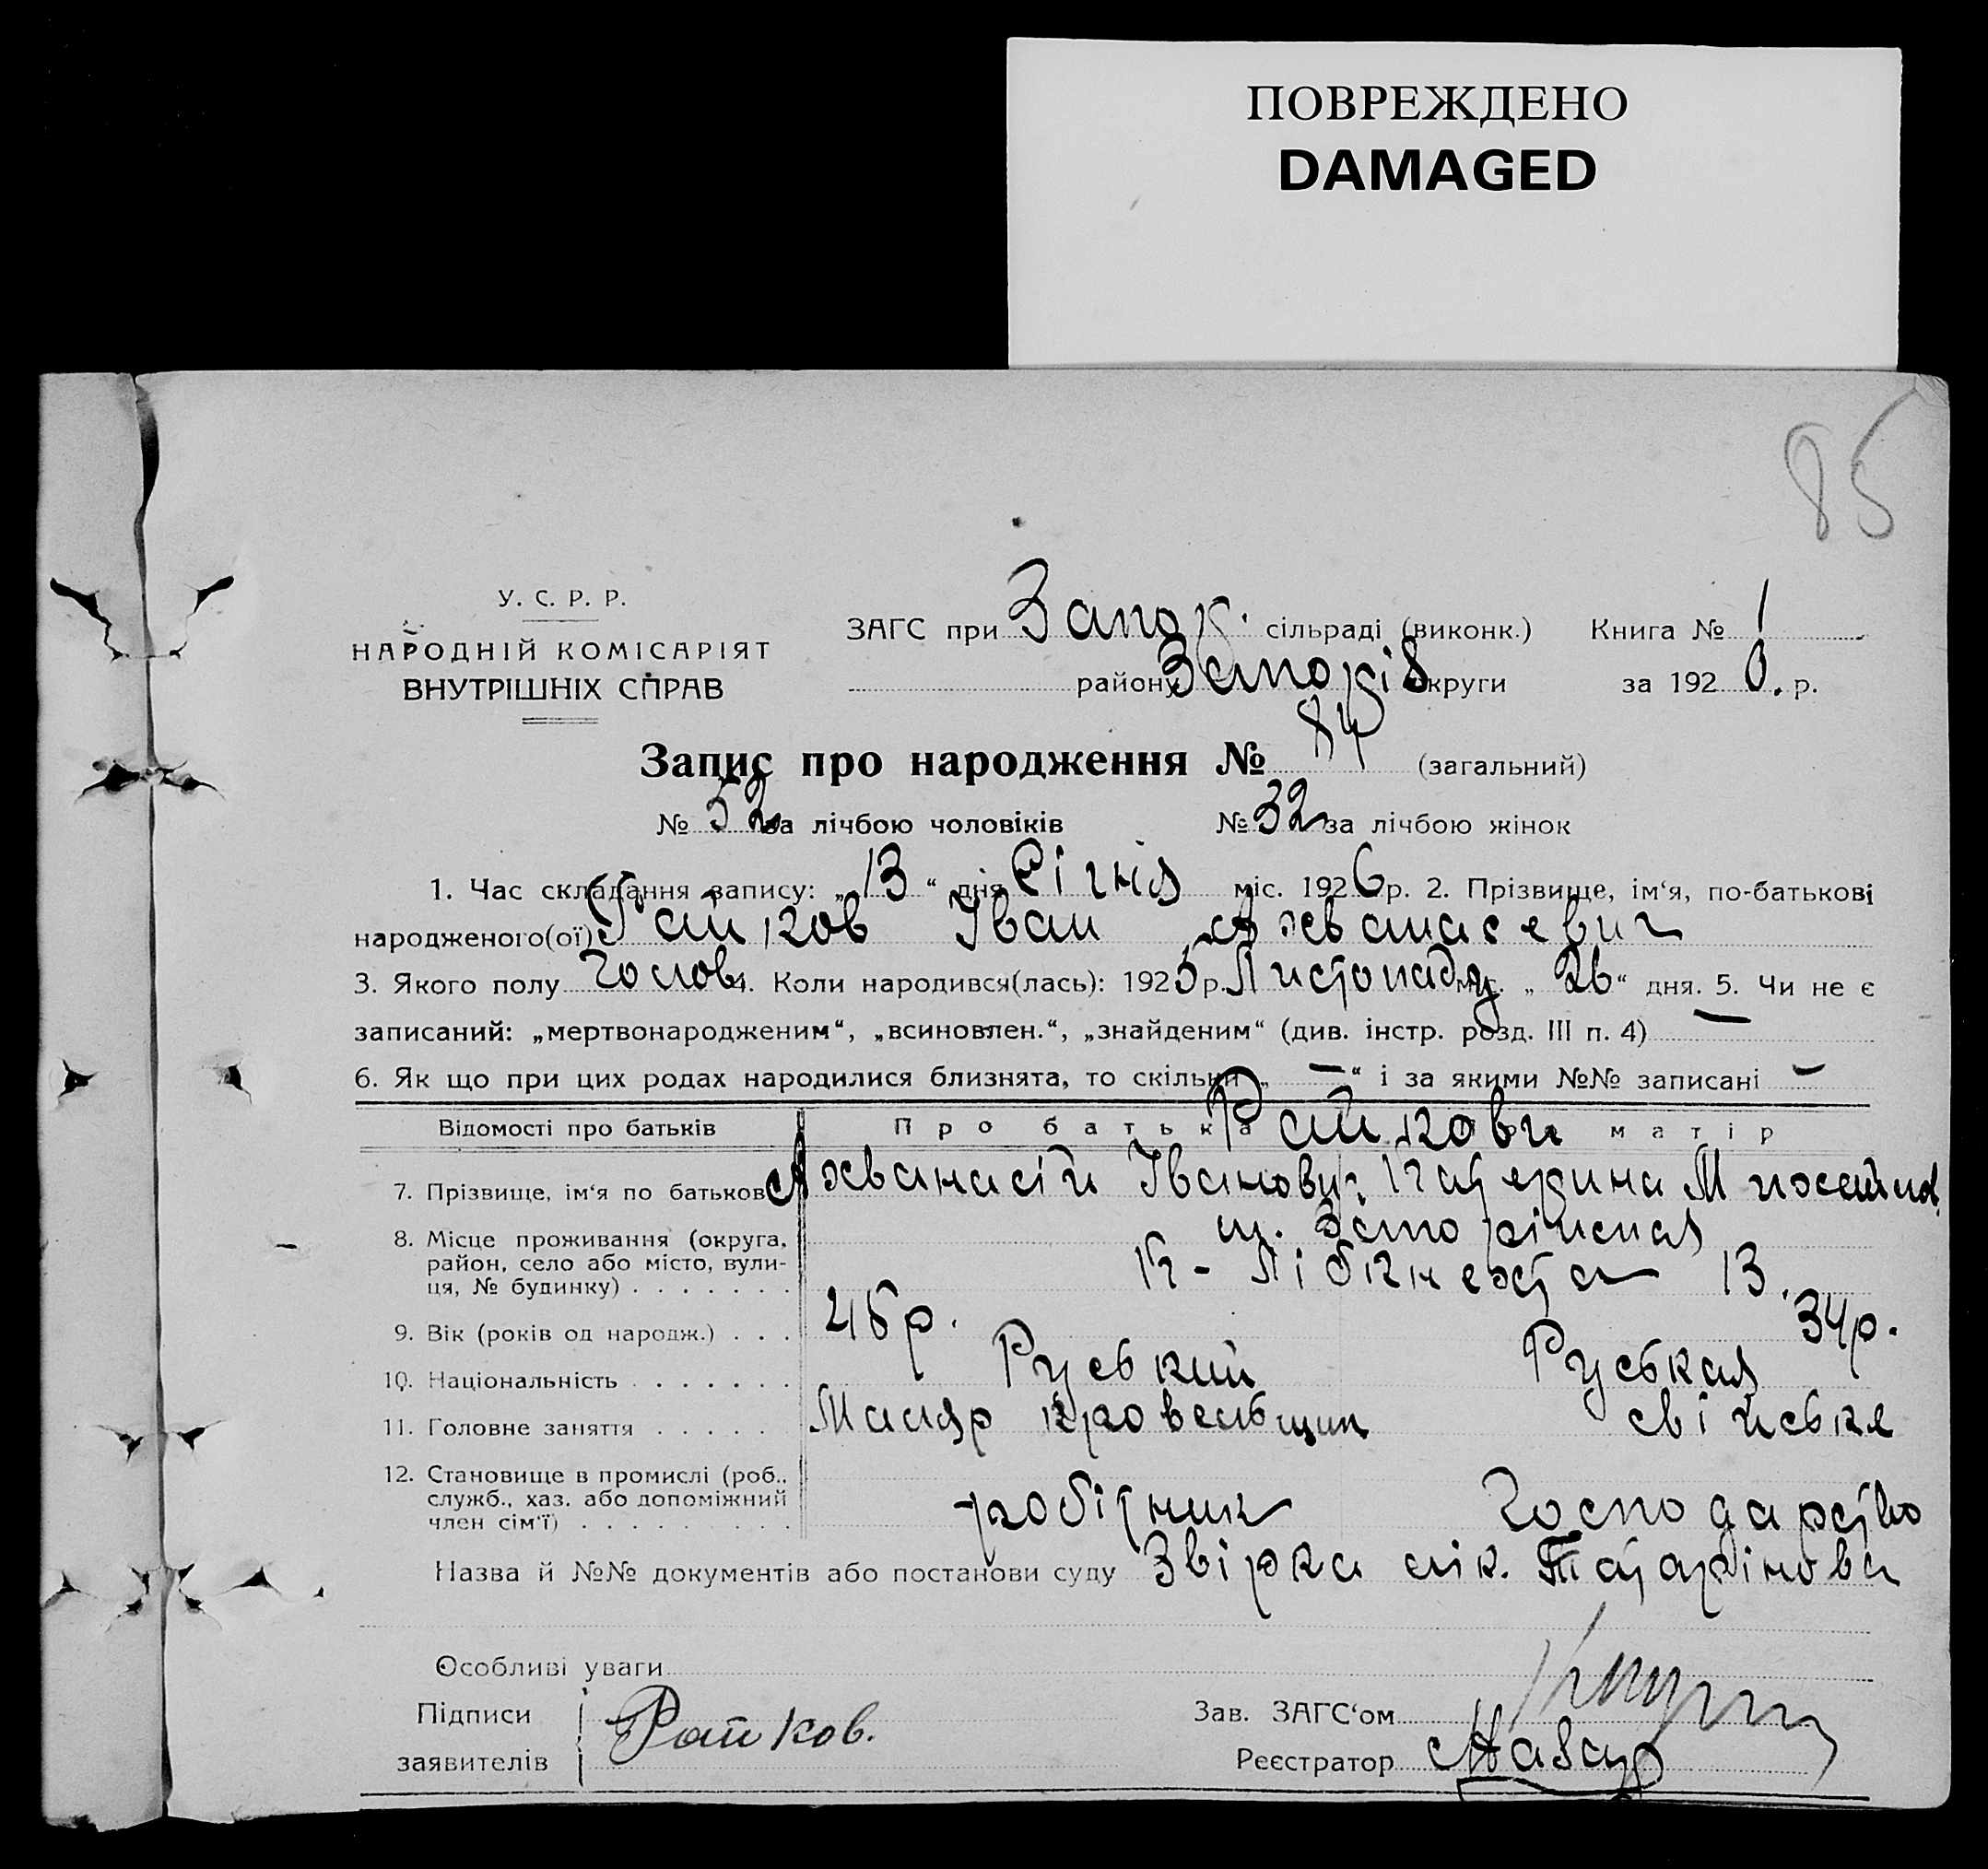 ПОВРЕЖДЕНО
DAMAGED
85
У. С. Р. Р.
НАРОДНІЙ КОМІСАРІЯТ
ВНУТРІШНІХ СПРАВ
ЗАГС при Запор. сільраді (виконк.) Книга № 1
району Запоріз округи за 192 р.
Запис про народження № 84 (загальний)
№ 52 за лічбою чоловіків № 32 за лічбою жінок
1. Час складання запису: „13“ дня Січня міс. 1926 р. 2. Прізвище, ім‘я, по-батькові
народженого(ої) Райков Іван Ахванасевич
3. Якого полу Чолов 4. Коли народився(лась): 1925 р. Листопаду міс. „26“ дня. 5. Чи не є
записаний: „мертвонародженим“, „всиновлен.“, „знайденим“ (див. інстр. розд. III п. 4) —
6. Як що при цих родах народилися близнята, то скільки „—“ і за якими №№ записані —
Відомості про батьків Про батька Райкови матір
7. Прізвище, ім‘я по батькові Ахванасій Іванович Катерина
8. Місце проживання (округа,
район, село або місто, вули-
ця, № будинку) К-Лібкнехта 13.
9. Вік (років од народж.) 45р. 34р.
10. Національність Руський Руськая
11. Головне заняття Маляр кровельщик свійське
12. Становище в промислі (роб.,
служб., хаз. або допоміжний
член сім‘ї) робітник Господарство
Назва й №№ документів або постанови суду Звірка лік. Татарінова
Особливі уваги
Підписи
заявителів Райков.
Зав. ЗАГС‘ом
Реєстратор